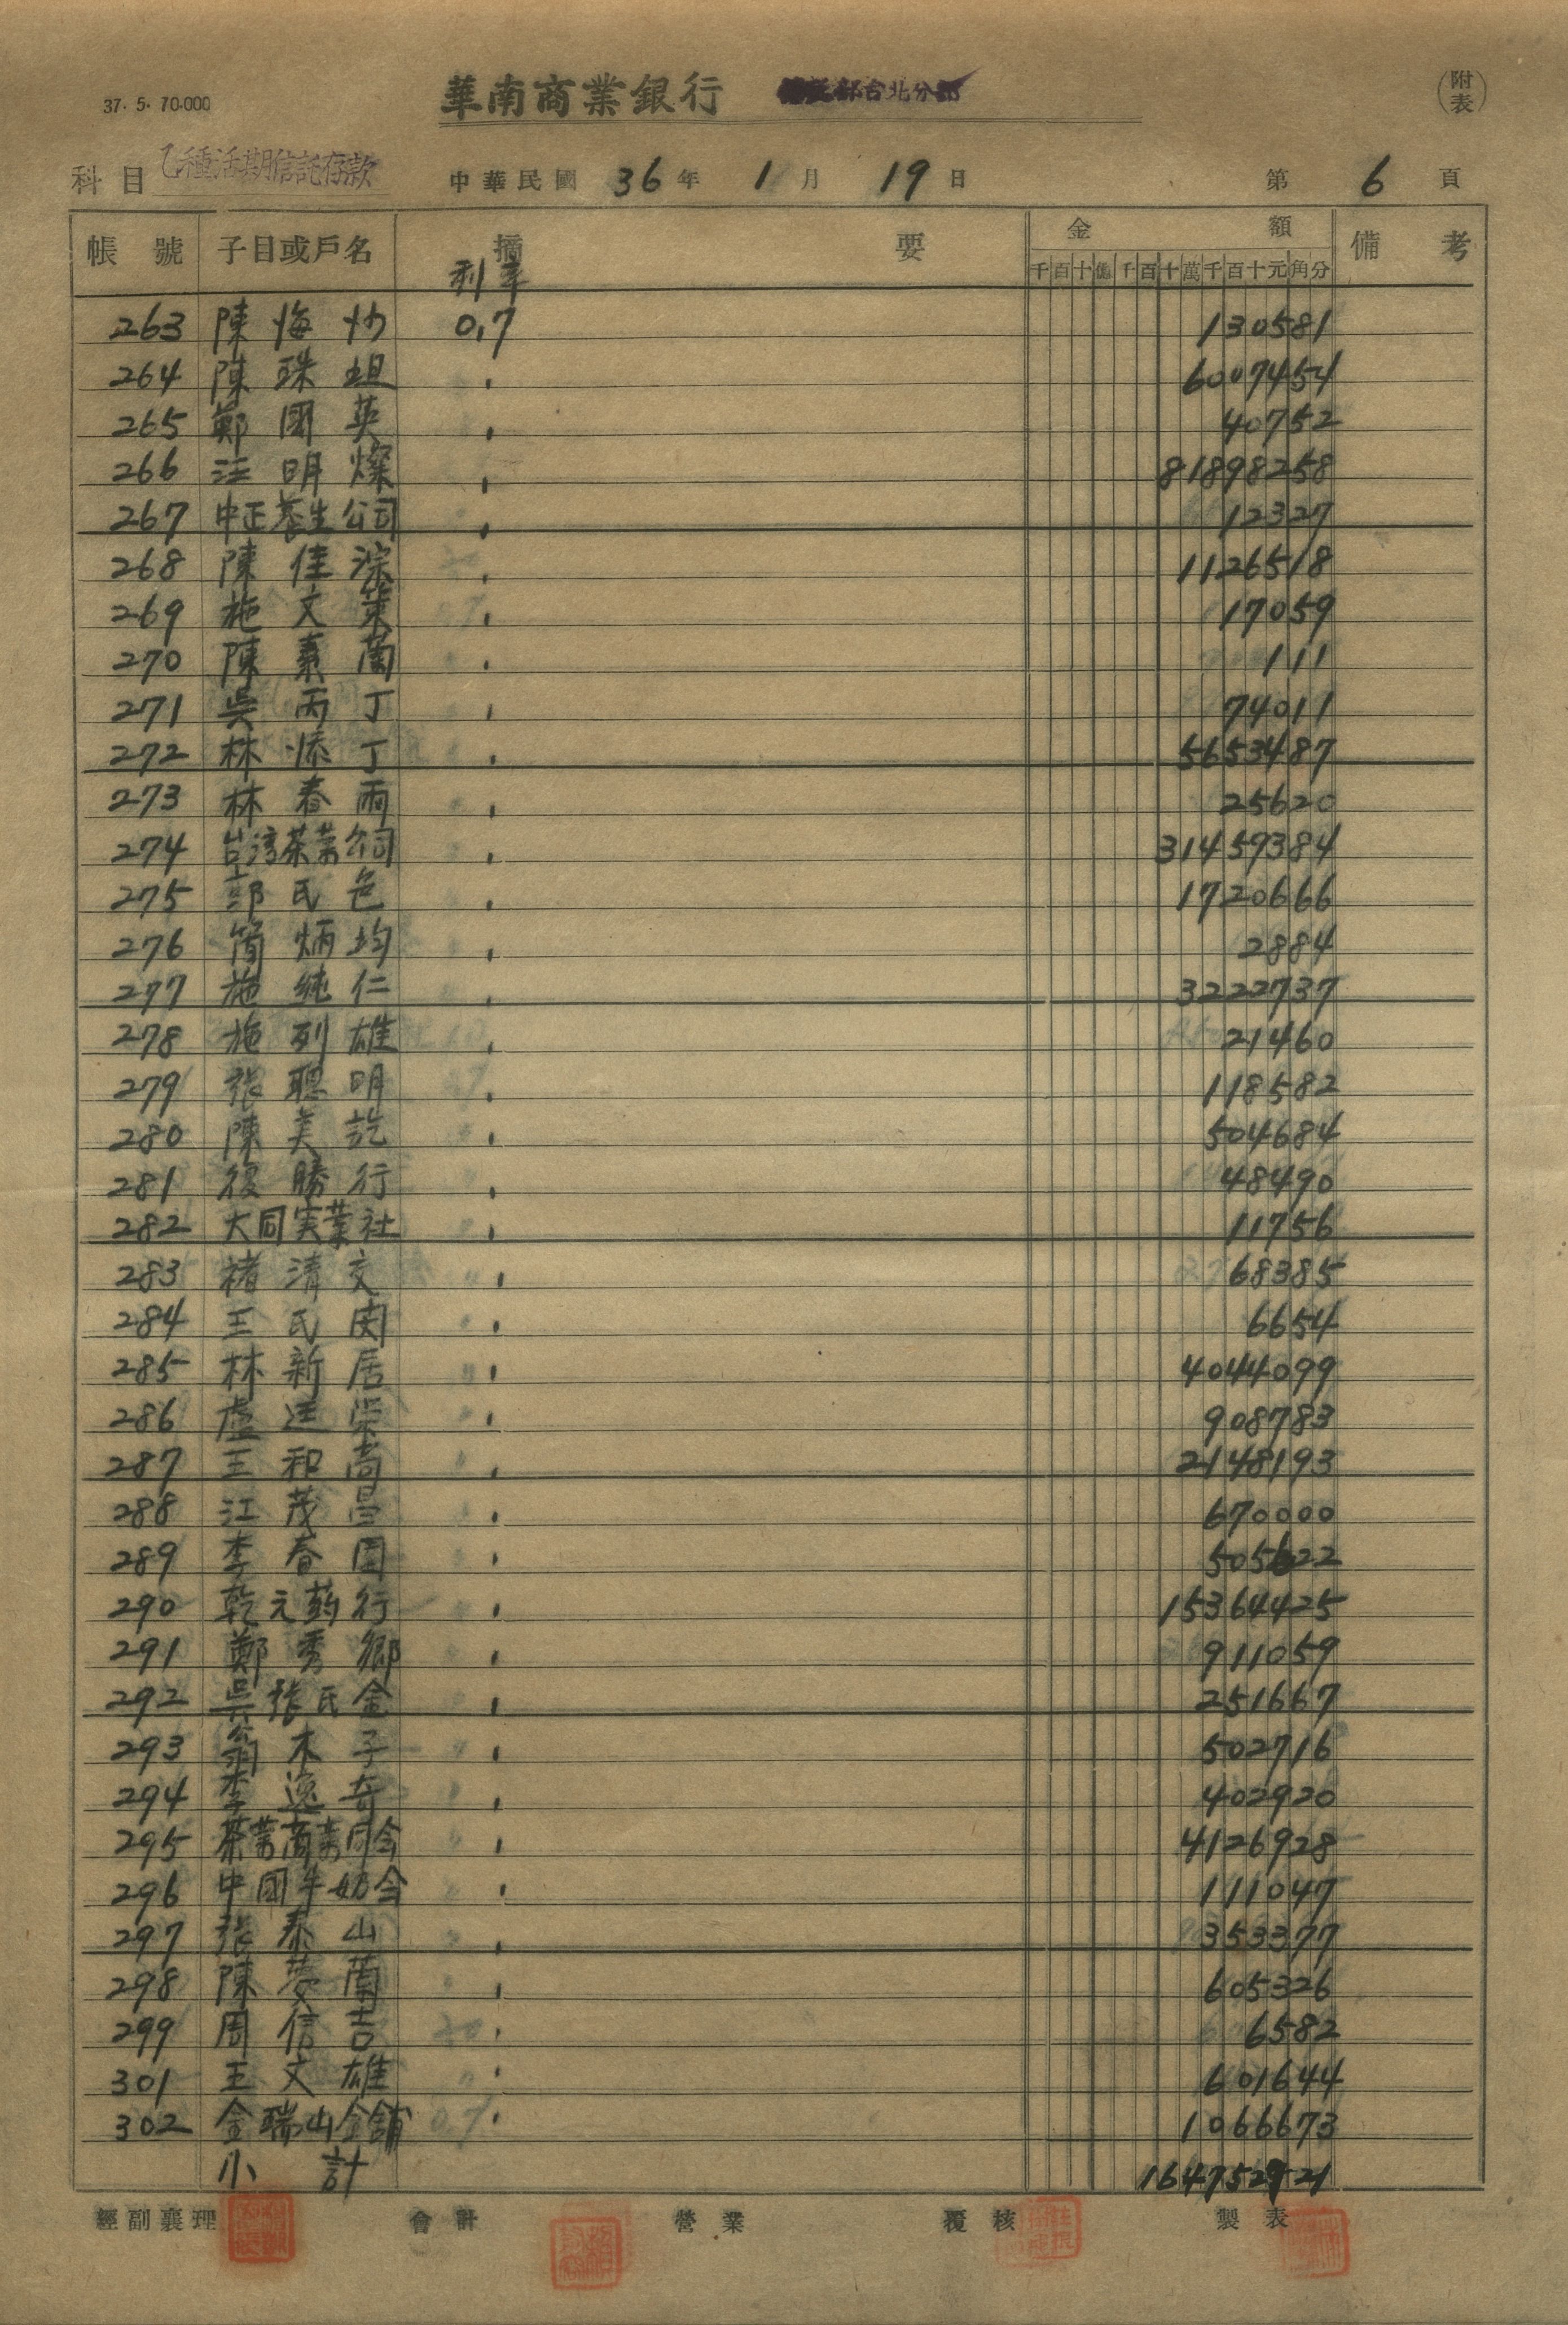 37. 5. 70.000
華南商業銀行 部台北分部
(附表)
科目 乙種活期信託存款 中華民國 36 年 1 月 19 日 第 6 頁
帳號 子目或戶名 摘要 金額 備考
利率 千百十億千百十萬千百十元角分
263 陳悔妙 0.7 130581
264 陳珠坦 〃 6007454
265 鄭國英 〃 40752
266 汪明燦 〃 81898258
267 中正養生公司 〃 12327
268 陳佳淙 〃 1126518
269 施文策 〃 17059
270 陳素蘭 〃 111
271 吳丙丁 〃 74011
272 林添丁 〃 5653487
273 林春雨 〃 25620
274 台湾茶業公司 〃 31459384
275 郭氏色 〃 1720666
276 簡炳均 〃 2884
277 施純仁 〃 3222737
278 施列雄 〃 21460
279 張聰明 〃 118582
280 陳美訖 〃 504684
281 復勝行 〃 48490
282 大同実業社 〃 11756
283 褚清文 〃 68385
284 王氏 〃 6654
285 林新居 〃 4044099
286 盧廷榮 〃 908783
287 王和尚 〃 2148193
288 江茂昌 〃 670000
289 李春 〃 505622
290 乾元葯行 〃 15364425
291 鄭秀鄉 〃 911059
292 吳張氏金 〃 251667
293 翁木子 〃 502716
294 李逸奇 〃 402920
295 茶業商業同会 〃 4126928
296 中國牛奶会 〃 111047
297 張泰山 〃 353377
298 陳蘭 〃 605326
299 周信吉 〃 6582
301 王文雄 〃 601644
302 金瑞山金舖 〃 1066673
小計 164752921
經副襄理 會計 營業 覆核 製表